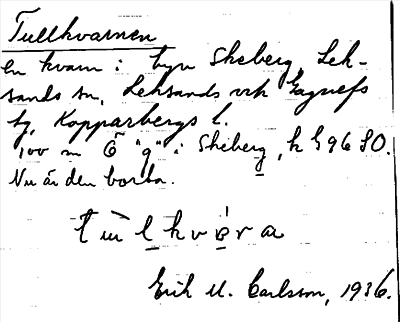 Tullkvarnen
en kvarn i byn Skeberg, Lek-
sands sn, Leksands och Gagnefs
tg, Kopparbergs l.
100 m Ö "g" i Skeberg, k § 96 SO.
Nu är den borta.
tulkværa
Erik M. Carlsson, 1936.